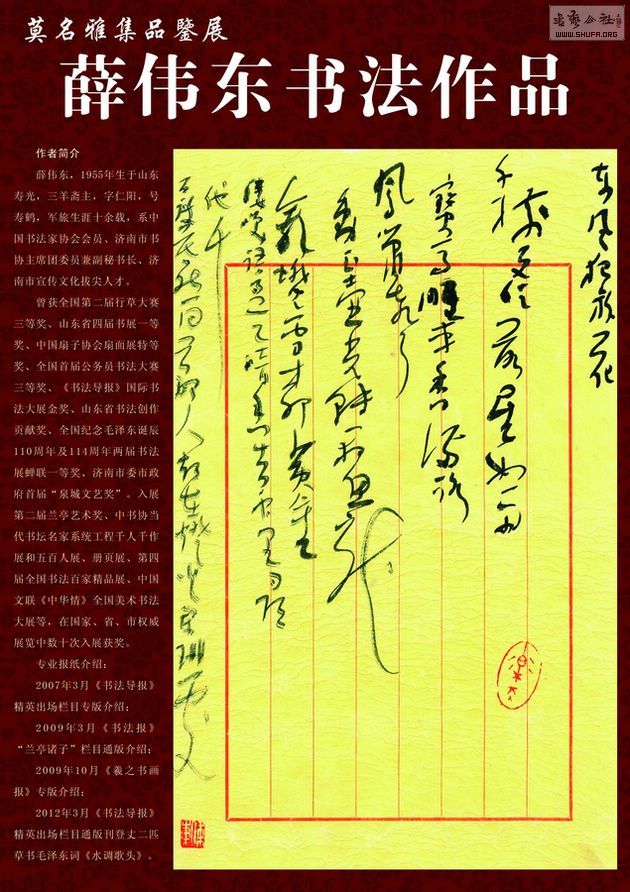 书法公社
WWW.SHUFA.ORG
莫名雅集品鑒展
薛伟东书法作品
作者简介
薛伟东，1955年生于山东
寿光，三羊斋主，字仁阳，号
寿鹤，军旅生涯十余载，系中
国书法家协会会员、济南市书
协主席团委员兼副秘书长、济
南市宣传文化拔尖人才。
曾获全国第二届行草大赛
三等奖、山东省四届书展一等
奖、中国扇子协会扇面展特等
奖、全国首届公务员书法大赛
三等奖、《书法导报》国际书
法大展金奖、山东省书法创作
贡献奖、全国纪念毛泽东诞辰
110周年及114周年两届书法
展蝉联一等奖、济南市委市政
府首届“泉城文艺奖”。入展
第二届兰亭艺术奖、中书协当
代书坛名家系统工程千人千作
展和五百人展、册页展、第四
届全国书法百家精品展、中国
文联《中华情》全国美术书法
大展等，在国家、省、市权威
展览中数十次入展获奖。
专业报纸介绍：
2007年3月《书法导报》
精英出场栏目专版介绍；
2009年3月《书法报》
“兰亭诸子”栏目通版介绍；
2009年10月《羲之书画
报》专版介绍；
2012年3月《书法导报》
精英出场栏目通版刊登丈二匹
草书毛泽东词《水调歌头》。
东风夜放花
千树更吹落星如雨
宝马雕车香满路
凤箫声动
玉壶光转一夜鱼龙
蛾儿雪柳黄金
笑语盈盈暗香去众里寻
他千
百度蓦然回首那人却在灯火阑珊